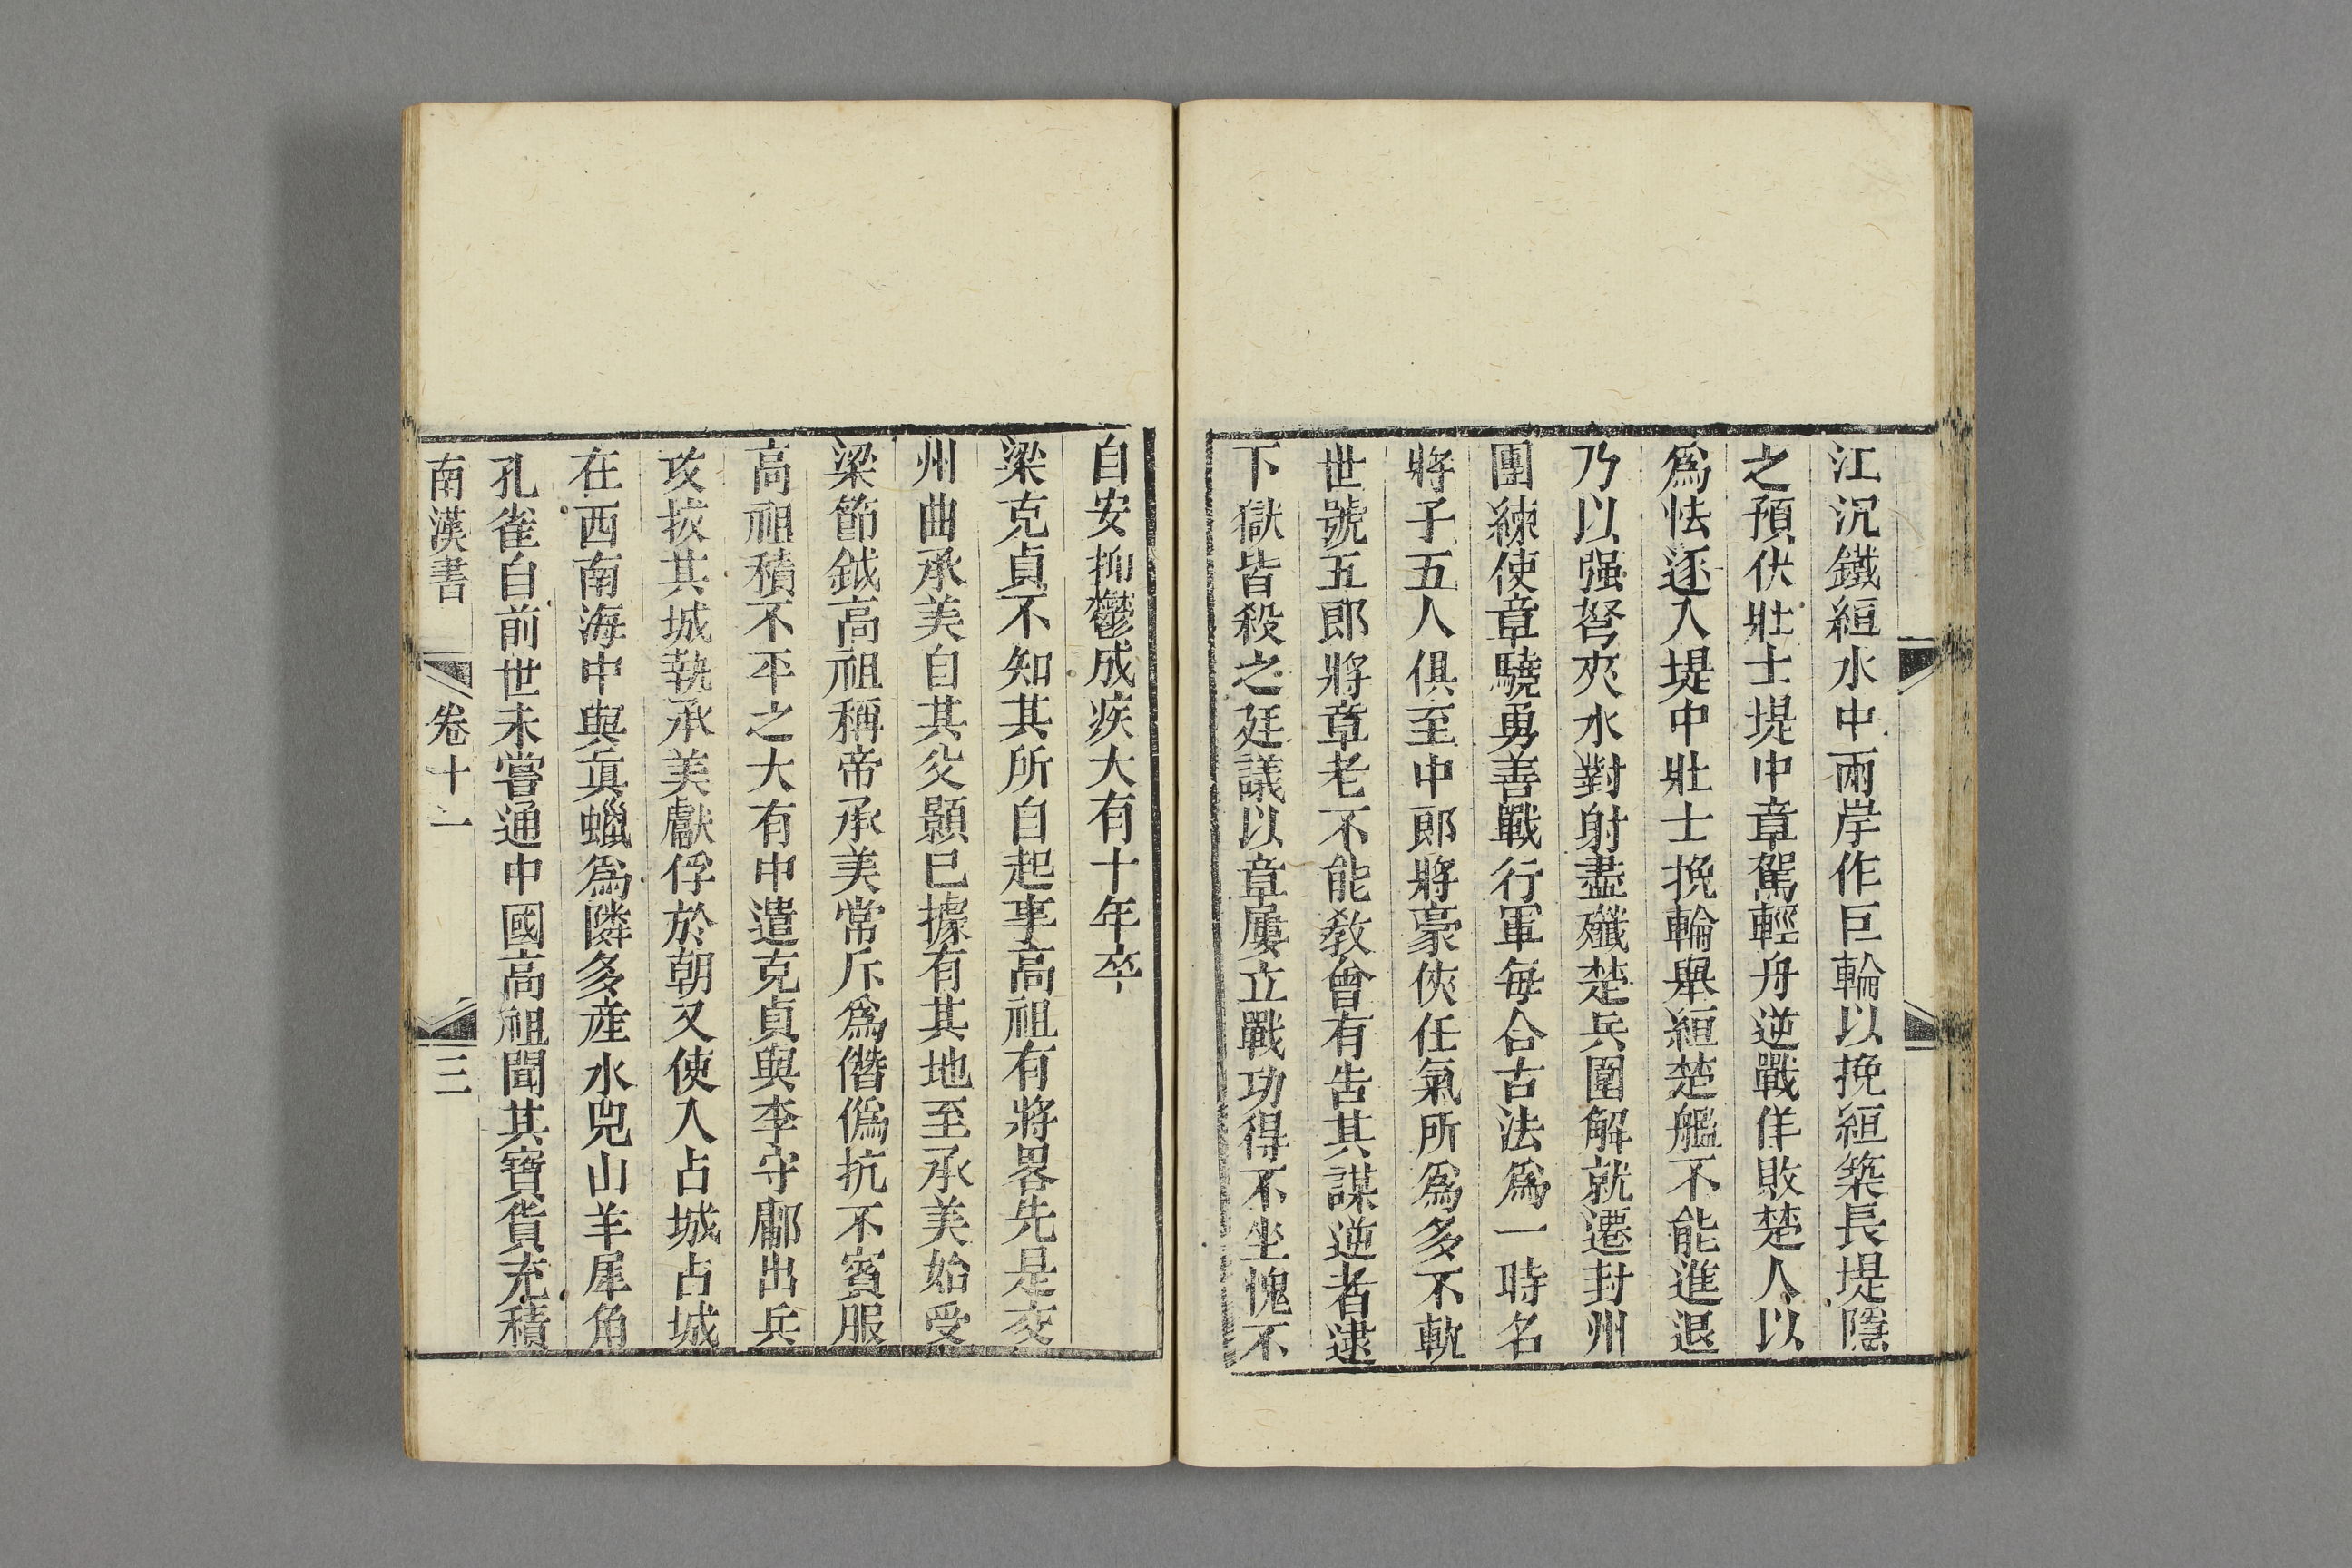 江沉鐵絙水中兩岸作巨輪以挽絙築長堤隱
之預伏壯士堤中章駕輕舟逆戰佯敗楚人以
爲怯逐入堤中壯士挽輪舉絙楚艦不能進退
乃以强弩夾水對射盡殲楚兵圍解就遷封州
團練使章驍勇善戰行軍每合古法爲一時名
將子五人俱至中郎將豪俠任氣所爲多不軌
世號五郎將章老不能敎會有告其謀逆者逮
下獄皆殺之廷議以章屢立戰功得不坐愧不
自安抑鬱成疾大有十年卒
梁克貞不知其所自起事高祖有將畧先是交
州曲承美自其父顥已據有其地至承美始受
梁節鉞高祖稱帝承美常斥爲僭僞抗不賓服
高祖積不平之大有中遣克貞與李守鄘出兵
攻拔其城執承美獻俘於朝又使入占城占城
在西南海中與眞蠟爲隣多産水兕山羊犀角
孔雀自前世未嘗通中國高祖聞其寶貨充積
南漢書 卷十二 三